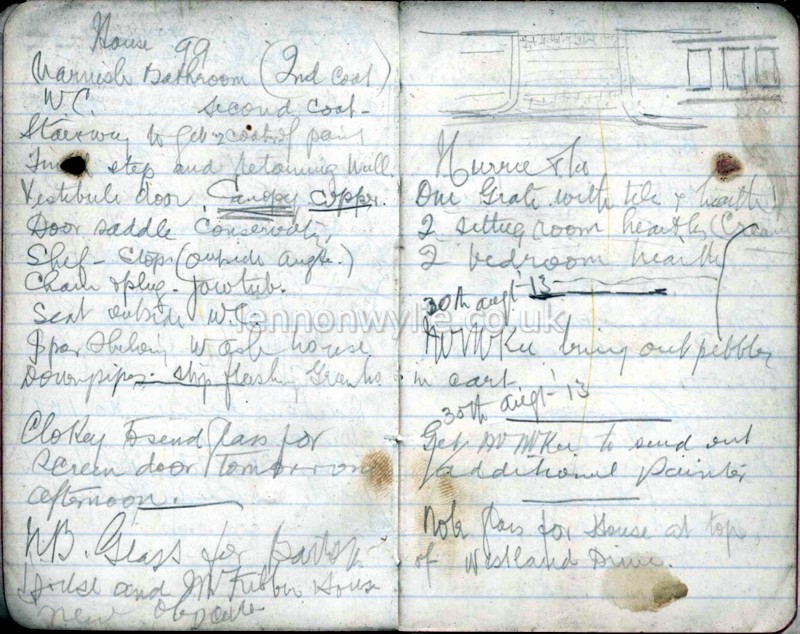 House 99
Varnish Bathroom (2nd Coat)
W.C. second coat-
Stairway to get 2 coats of paint
step and retaining wall.
Vestibule door Canopy copper.
Door saddle Conservat
Shelf- Stops (outside angle.)
Chain & plug- jawtub.
Seat outside W.C.
wash house
Downpipes- stop flashing
Clokey to send glass for
screen door tomorrow
afternoon.
NB. Glass for
House and McKibbin House
new
One Grate with tile & hearth
2 sitting room hearths (
2 bedroom hearths
30th augt-13
McKee bring out pebbles
in cart
30th augt-13
Get McKee to send out
additional painter
Note glass for House at top
of Westland Drive.
lennonwylie.co.uk